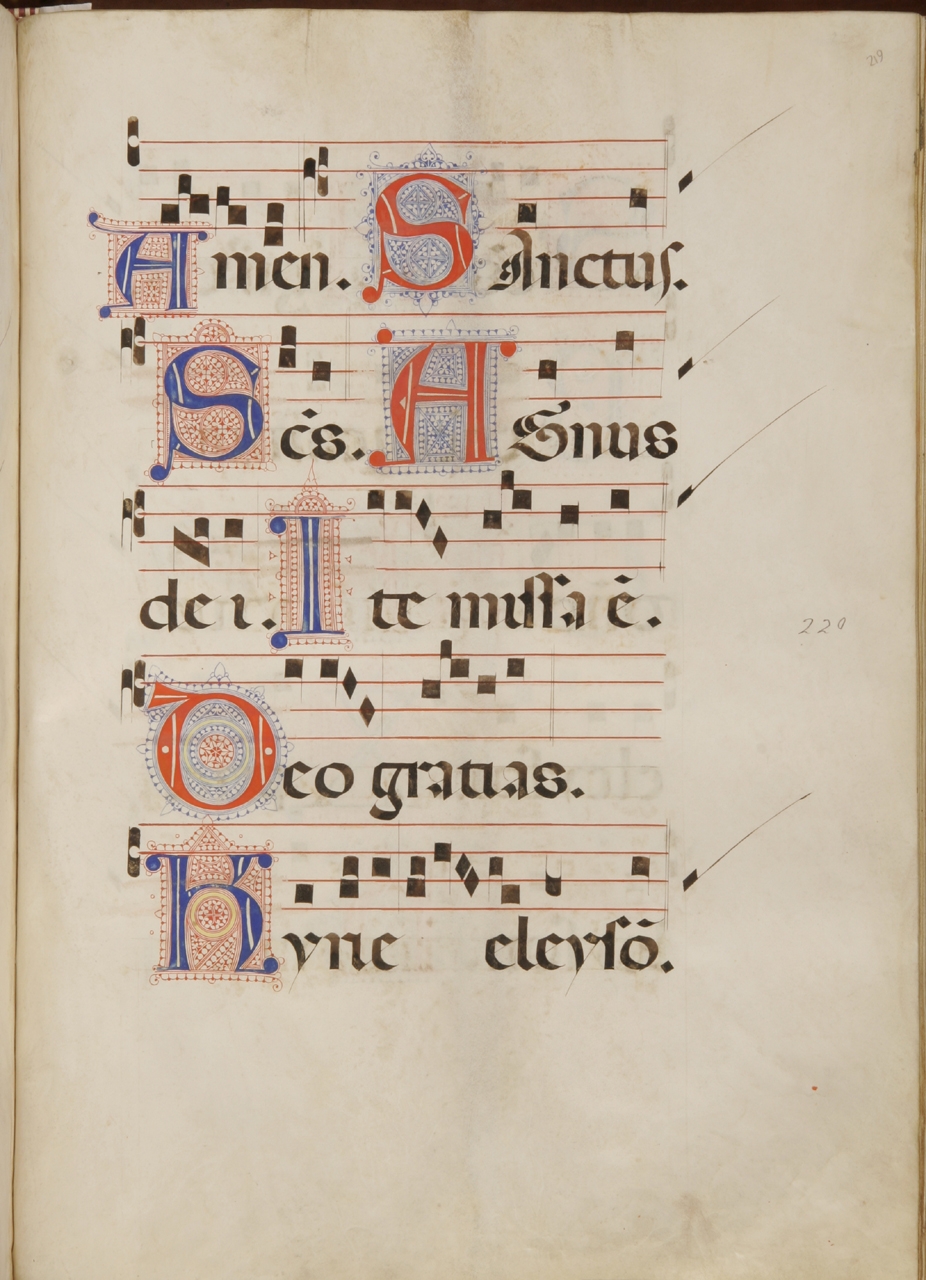 219
Amen. Sanctus.
Sc̄s. Agnus
dei. Ite missa ē.
220
Deo gratias.
Kyrie eleysō.